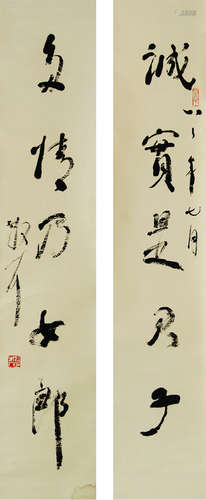 誠實是君子
八三年七月
多情乃女郎